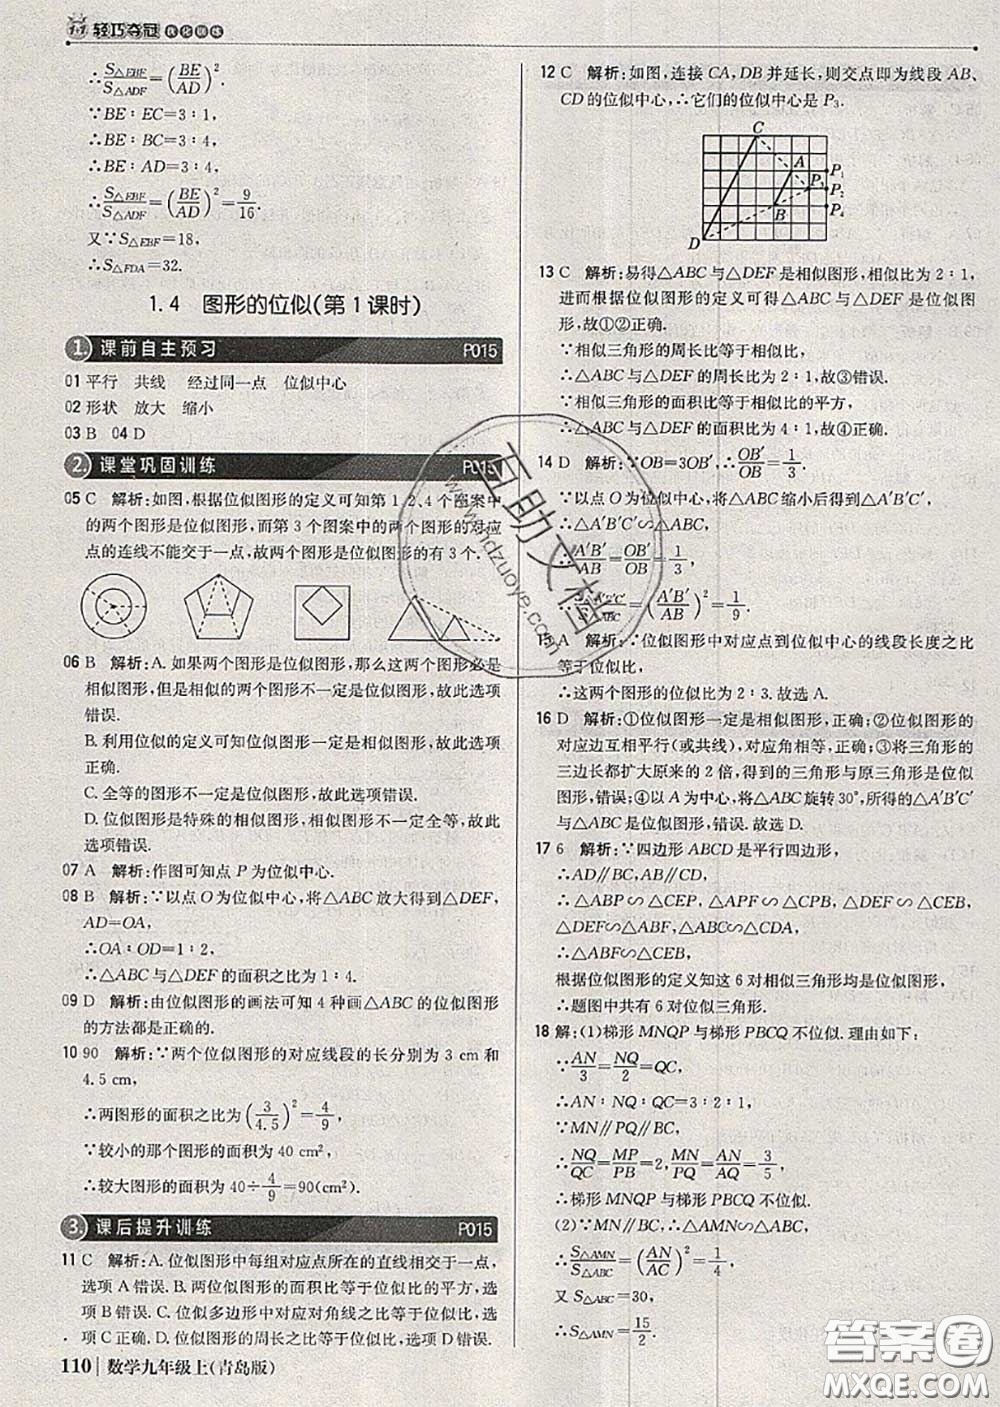 1+1 轻巧夺冠 优化训练
∴S△EBF/S△ADF=(BE/AD)².
∵BE∶EC=3∶1,
∴BE∶BC=3∶4,
∴BE∶AD=3∶4,
∴S△EBF/S△ADF=(BE/AD)²=9/16.
又∵S△EBF=18,
∴S△FDA=32.
1.4 图形的位似(第1课时)
1. 课前自主预习 P015
01 平行 共线 经过同一点 位似中心
02 形状 放大 缩小
03 B 04 D
2. 课堂巩固训练 P015
05 C 解析:如图,根据位似图形的定义可知第1、2、4个图案中
的两个图形是位似图形,而第3个图案中的两个图形的对应
点的连线不能交于一点,故两个图形是位似图形的有3个.
06 B 解析:A.如果两个图形是位似图形,那么这两个图形必是
相似图形,但是相似的两个图形不一定是位似图形,故此选项
错误.
B.利用位似的定义可知位似图形一定是相似图形,故此选项
正确.
C.全等的图形不一定是位似图形,故此选项错误.
D.位似图形是特殊的相似图形,相似图形不一定全等,故此
选项错误.
07 A 解析:作图可知点P为位似中心.
08 B 解析:∵以点O为位似中心,将△ABC放大得到△DEF,
AD=OA,
∴OA∶OD=1∶2,
∴△ABC与△DEF的面积之比为1∶4.
09 D 解析:由位似图形的画法可知4种画△ABC的位似图形
的方法都是正确的.
10 90 解析:∵两个位似图形的对应线段的长分别为3 cm和
4.5 cm,
∴两图形的面积之比为(3/4.5)²=4/9,
∵较小的那个图形的面积为40 cm²,
∴较大图形的面积为40÷4/9=90(cm²).
3. 课后提升训练 P015
11 C 解析:A.位似图形中每组对应点所在的直线相交于一点,
选项A错误.B.两位似图形的面积比等于位似比的平方,选
项B错误.C.位似多边形中对应对角线之比等于位似比,选
项C正确.D.位似图形的周长之比等于位似比,选项D错误.
110 数学九年级上(青岛版)
12 C 解析:如图,连接CA,DB并延长,则交点即为线段AB、
CD的位似中心,∴它们的位似中心是P₃.
C
A
P₁
P₃
P₂
B
P₄
D
13 C 解析:易得△ABC与△DEF是相似图形,相似比为2∶1,
进而根据位似图形的定义可得△ABC与△DEF是位似图
形,故①②正确.
∵相似三角形的周长比等于相似比,
∴△ABC与△DEF的周长比为2∶1,故③错误.
∵相似三角形的面积比等于相似比的平方,
∴△ABC与△DEF的面积比为4∶1,故④正确.
14 D 解析:∵OB=3OB′,∴OB′/OB=1/3.
∵以点O为位似中心,将△ABC缩小后得到△A′B′C′,
∴△A′B′C′∽△ABC,
∴A′B′/AB=OB′/OB=1/3,
∴S△A′B′C′/S△ABC=(A′B′/AB)²=1/9.
15 A 解析:∵位似图形中对应点到位似中心的线段长度之比
等于位似比,
∴这两个图形的位似比为2∶3.故选A.
16 D 解析:①位似图形一定是相似图形,正确;②位似图形的
对应边互相平行(或共线),对应角相等,正确;③将三角形的
三边长都扩大原来的2倍,得到的三角形与原三角形是位似
图形,错误;④以A为中心,将△ABC旋转30°,所得的△A′B′C′
与△ABC是位似图形,错误.故选D.
17 6 解析:∵四边形ABCD是平行四边形,
∴AD∥BC,AB∥CD,
∴△ABP∽△CEP,△APF∽△CPB,△DEF∽△CEB,
△DEF∽△ABF,△ABC∽△CDA,
∴△ABF∽△CEB,
根据位似图形的定义知这6对相似三角形均是位似图形,
∴题图中共有6对位似三角形.
18 解:(1)梯形MNQP与梯形PBCQ不位似.理由如下:
∵AN/3=NQ/2=QC,
∴AN∶NQ∶QC=3∶2∶1,
∵MN∥PQ∥BC,
∴NQ/QC=MP/PB=2,MN/PQ=AN/AQ=3/5,
∴梯形MNQP与梯形PBCQ不位似.
(2)∵MN∥BC,
∴S△AMN/S△ABC=(AN/AC)²=1/4,
又S△ABC=30,
∴S△AMN=15/2.
互助文档
www.hdzuoye.com
答案圈
MXQE.COM